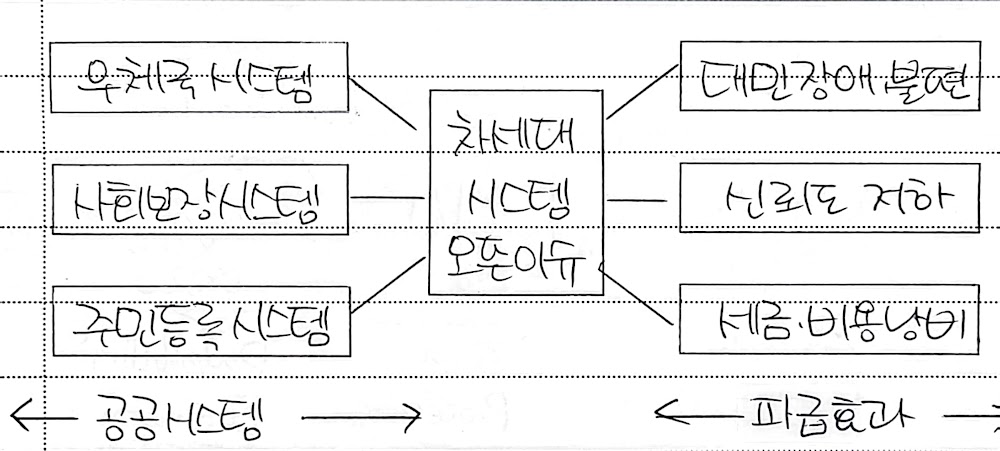 우체국 시스템
사회보장시스템
주민등록시스템
차세대
시스템
오픈이슈
대민장애.불편
신뢰도 저하
세금.비용낭비
공공시스템
파급효과